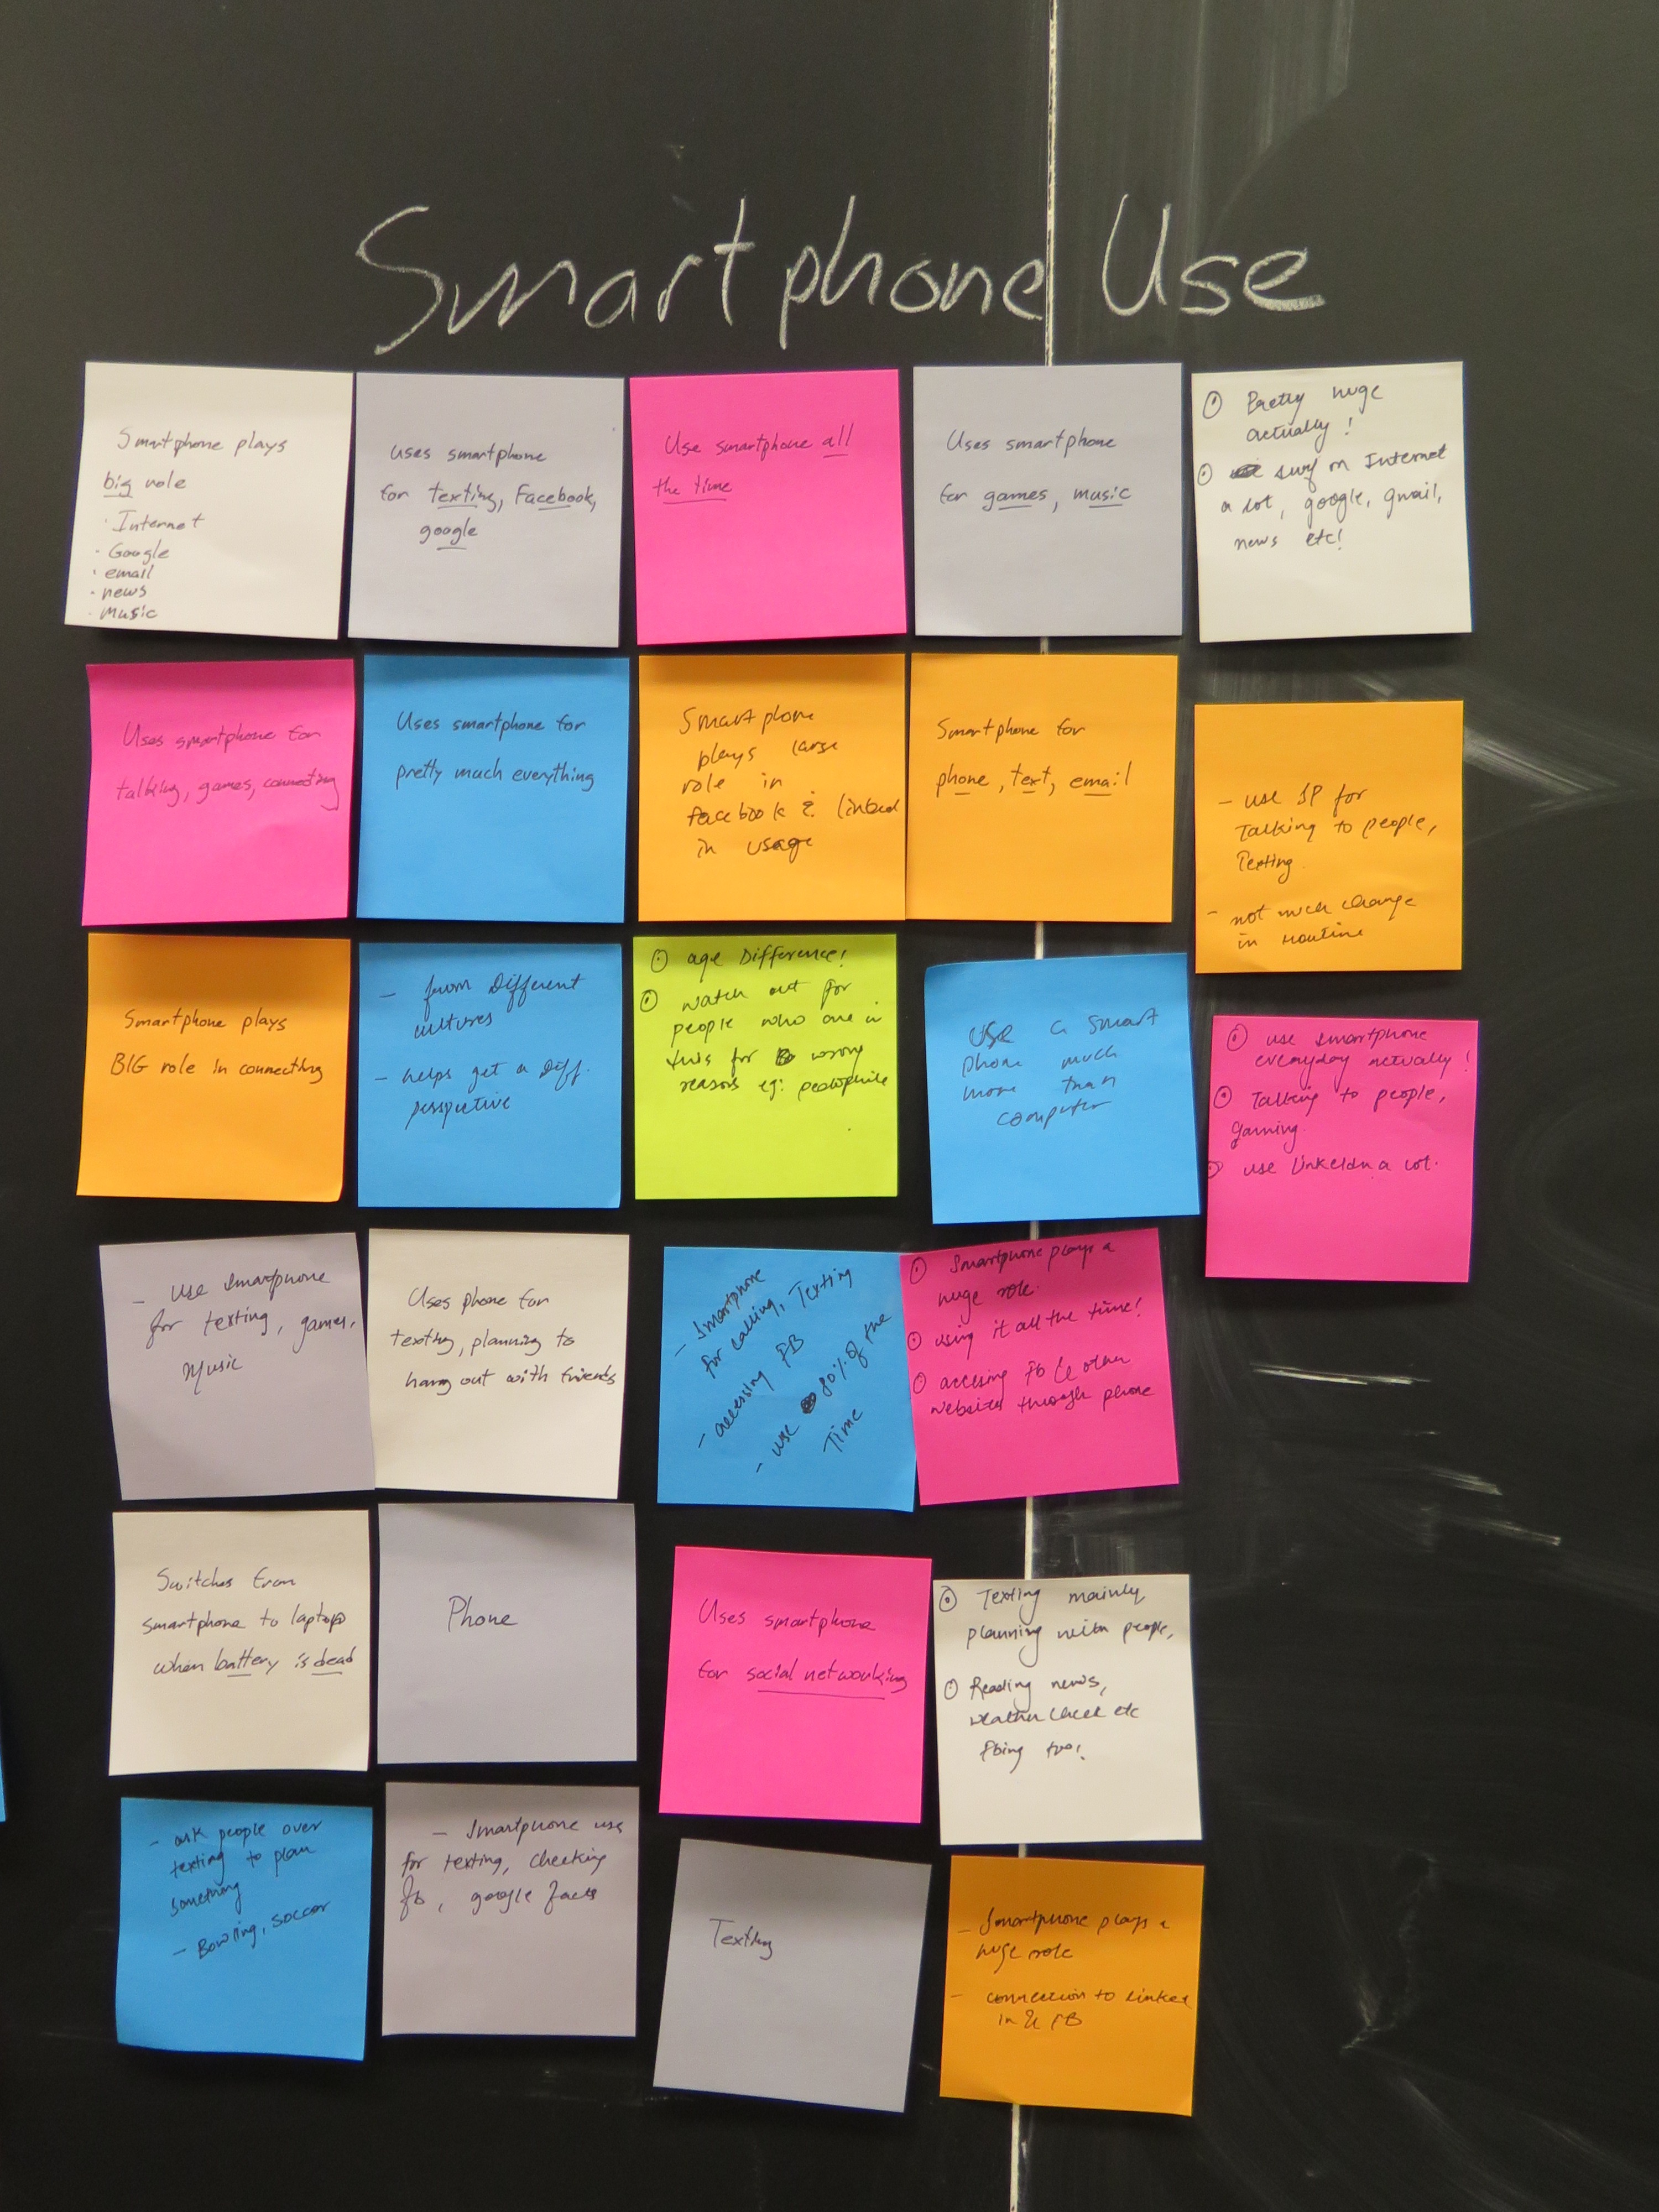 Smartphone Use
Smartphone plays
big role
· Internet
· Google
· email
· news
· music
uses smartphone
for texting, Facebook,
google
Use smartphone all
the time
Uses smartphone
for games, music
Pretty huge
actually!
surf on Internet
a lot, google, gmail,
news etc!
Uses smartphone for
talking, games, connecting
Uses smartphone for
pretty much everything
Smartphone
plays large
role in
facebook & linked
in usage
Smartphone for
phone, text, email
- use SP for
Talking to people,
Texting.
- not much change
in routine
Smartphone plays
BIG role in connecting
- from Different
cultures
- helps get a Diff.
perspective
age Difference!
watch out for
people who are in
this for wrong
reasons eg: pedophile
Use a smart
phone much
more than
computer
use smartphone
everyday actually!
Talking to people,
gaming.
use LinkedIn a lot.
- use smartphone
for texting, games,
music
Uses phone for
texting, planning to
hang out with friends
- Smartphone
for calling, Texting
- accessing FB
- use 80% of the
Time
Smartphone plays a
huge role.
using it all the time!
accesing fb & other
websites through phone
Switches from
smartphone to laptop
when battery is dead
Phone
Uses smartphone
for social networking
Texting mainly
planning with people,
Reading news,
weather check etc
fbing too!
- ask people over
texting to plan
something
- Bowling, soccer
- Smartphone use
for texting, checking
fb, google facts
Texting
- Smartphone plays a
huge role
- connection to linked
in & FB